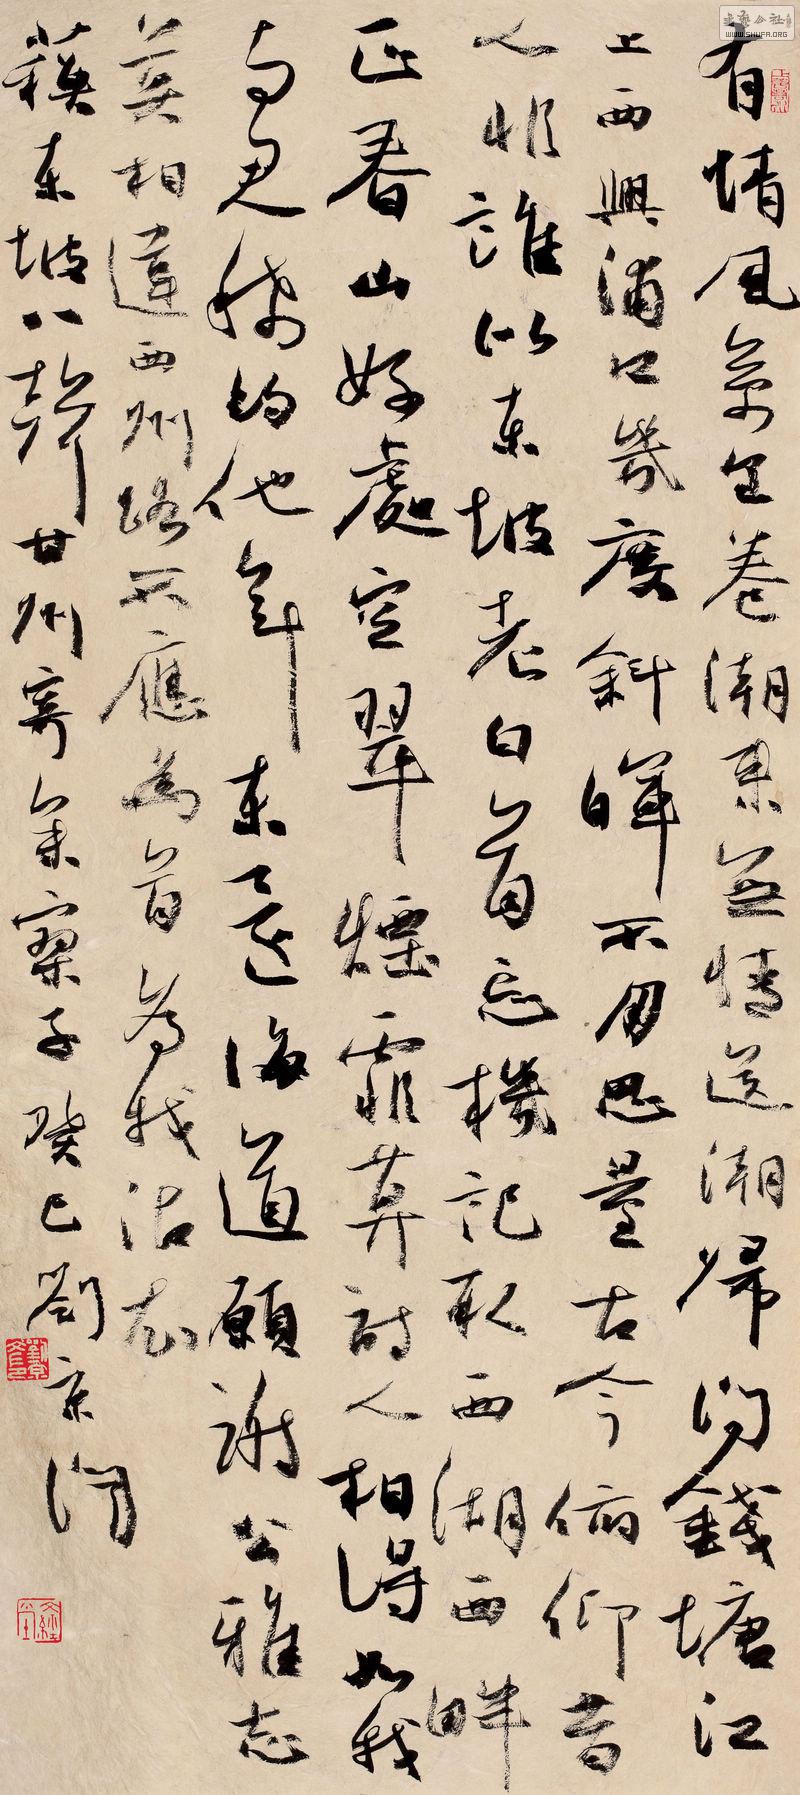 有情風萬里卷潮來無情送潮歸問錢塘江
上西興浦口幾度斜暉不用思量古今俯仰昔
人非誰似東坡老白首忘機記取西湖西畔
正春山好處空翠煙霏算詩人相得如我
與君稀約他年東還海道願謝公雅志
莫相違西州路不應回首為我沾衣
蘇東坡八聲甘州寄參寥子癸巳劉京聞
書藝公社
WWW.SHUFA.ORG